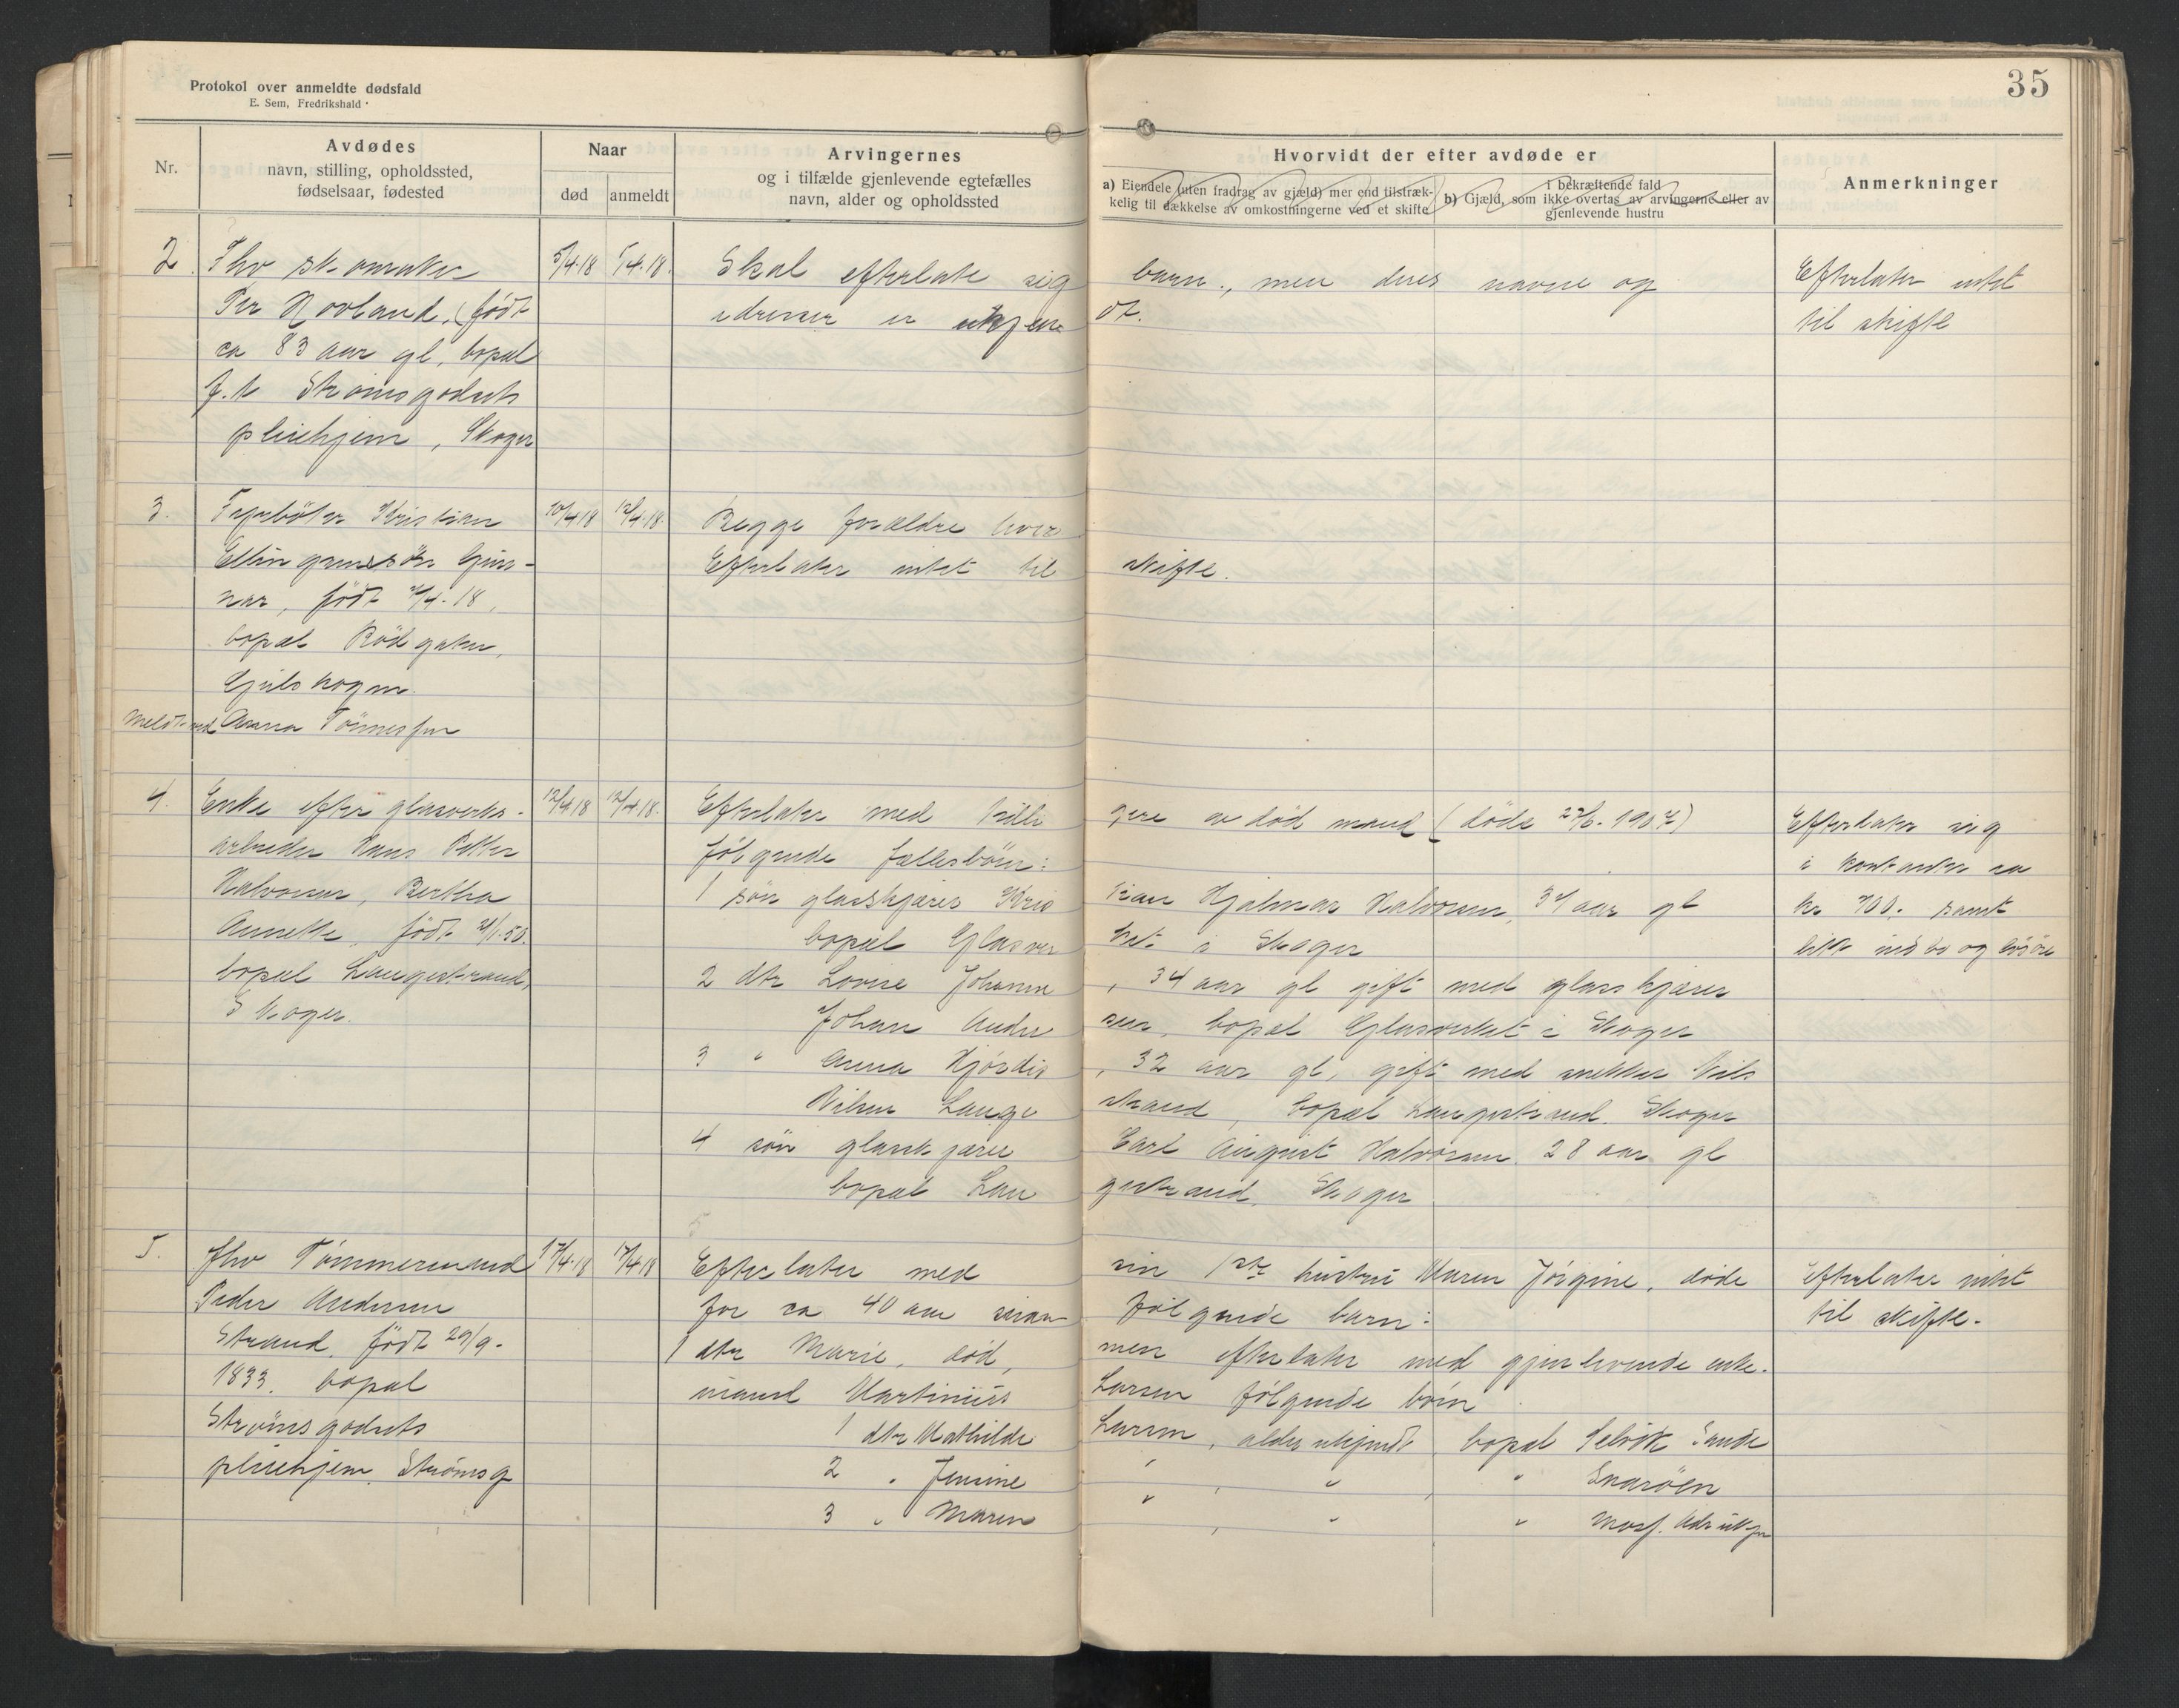 Protokol over anmeldte dødsfald
E. Sem, Fredrikshald
35
Nr.
Avdødes
navn, stilling, opholdssted,
fødselsaar, fødested
Naar
død anmeldt
Arvingernes
og i tilfælde gjenlevende egtefælles
navn, alder og opholdssted
Hvorvidt der efter avdøde er
a) Eiendele (uten fradrag av gjæld) mer end tilstræk-
kelig til dækkelse av omkostningerne ved et skifte
i bekræftende fald
b) Gjæld, som ikke overtas av arvingerne eller av
gjenlevende hustru
Anmerkninger
2. Fhv skomaker 5/4-18 5/4-18. Skal efterlate sig barn, men deres navne og Efterlater intet
Per Hovland, (født adresser er ukjen dt. til skifte
ca 83 aar gl, bopæl
f.t. Strømsgodsets
pleiehjem, Skoger
3. Kristian 10/4-18 12/4-18. Begge forældre lever.
Ellingsens søn Gun- Efterlater intet til skifte.
nar, født /4-18,
bopæl Rödgaten,
Gulskogen.
Meldt ved Anna Tönnessen
4. Enke efter glasverks- 12/4-18 12/4-18. Efterlater med tidli gere av død mand (døde 22/6-190 ) Efterlater sig
arbeider Hans Petter følgende fællesbörn: i kontanter ca
Halvorsen, Bertha 1 søn glasskjærer Kris tian Hjalmar Halvorsen, 37 aar gl kr 700. samt
Annette, født /1-50. bopæl Glasver ket i Skoger litt indbo og løsöre
bopæl Langestrand, 2 dtr Lovise Johanne, 34 aar gl gift med glasskjærer
Skoger. Johan Andre sen, bopæl Glasverket i Skoger
3 " Anna Hjørdis, 32 aar gl, gift med snekker Nils
Nilsen Lange strand, bopæl Langestrand. Skoger
4 søn glasskjærer Carl August Halvorsen. 28 aar gl
bopæl Lan gestrand. Skoger
5. fhv Tømmermand 17/4-18 17/4-18 Efterlater med sin 1ste hustru Maren Jörgine, døde Efterlater intet
Peder Andersen for ca 40 aar siden følgende barn: til skifte.
Strand. født 29/9- 1 dtr Marie, død, men efterlater med gjenlevende enke-
1833. bopæl mand Martinius Larsen følgende börn
Strømsgodsets 1 dtr Mathilde Larsen, alder ukjendt, bopæl Selvik Sande
pleiehjem. Strømsg 2 " Jensine " , " , " Snarøen
3 " Maren " , " " Moss. Adr ukjen